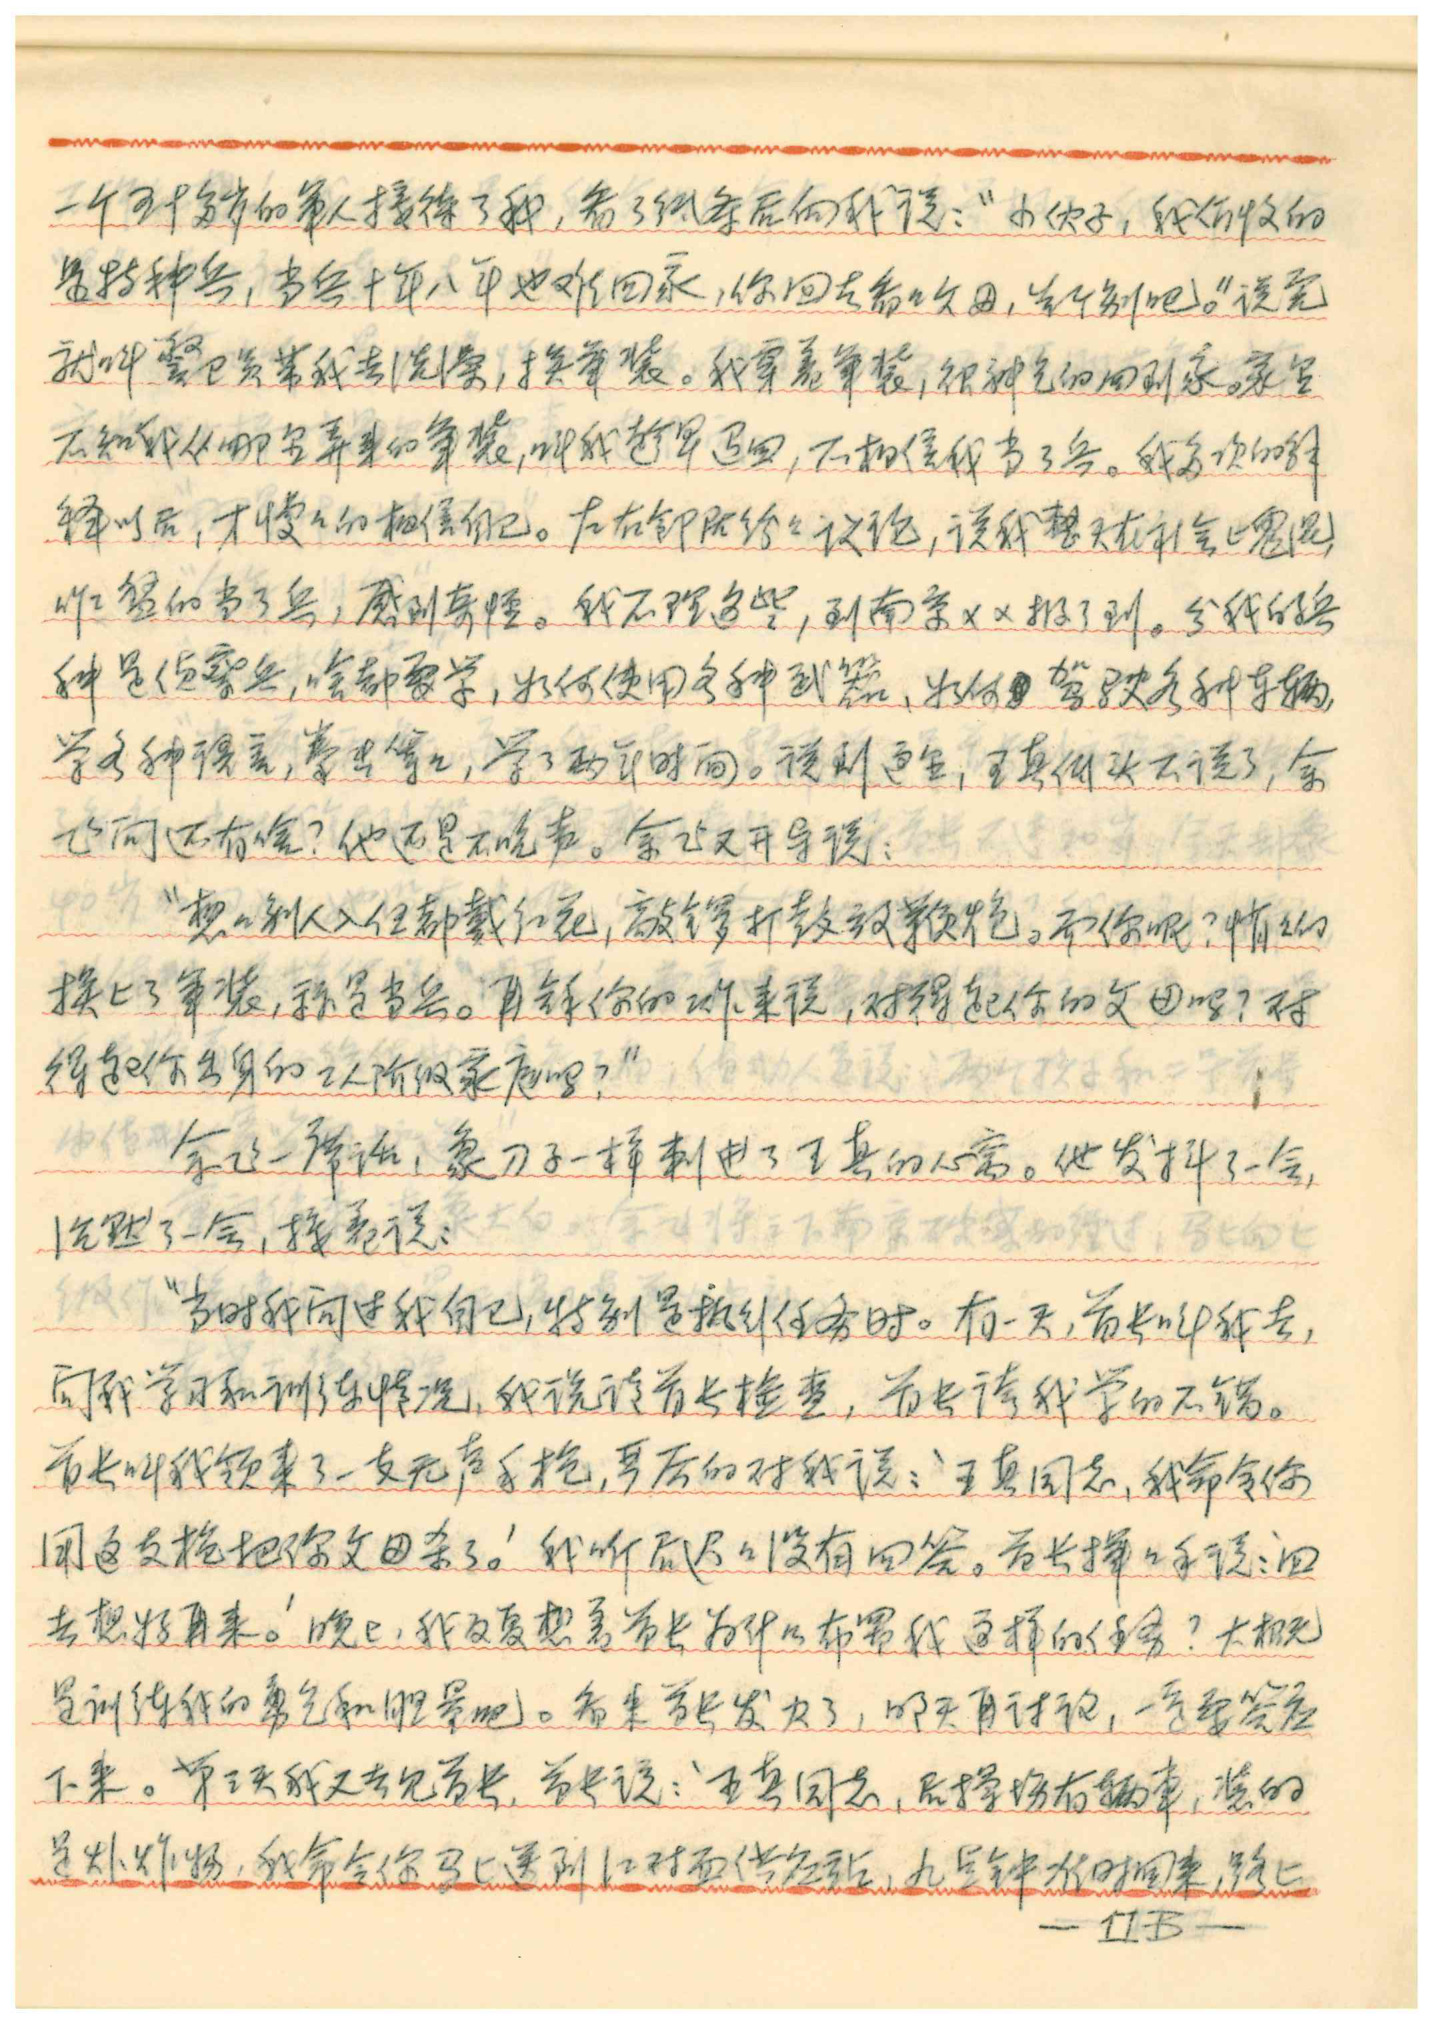 一个五十多岁的军人接待了我，看了纸条后向我说：“小伙子，我们收的
是特种兵，当兵十年八年也难回家，你回去看看父母，告个别吧。”说完
就叫警卫员带我去洗澡，换军装。我穿着军装，很神气的回到家。家里
不知我从哪里弄来的军装，叫我趁早退回，不相信我当了兵。我多次的解
释以后，才慢々的相信自己。左右邻居纷々议论，说我整天在社会上鬼混，
咋的当了兵，感到奇怪。我不理这些，到南京××报了到。分我的兵
种是侦察兵，啥都要学，如何使用各种武器、如何驾驶各种车辆，
学各种语言，拳击等々，学了两年时间。说到这里，王真低头不说了，余
飞问还有啥？他还是不吭声。余飞又开导说：
“想々别人入伍都戴红花，敲锣打鼓放鞭炮。而你呢？悄々的
换上了军装，就是当兵。再拿你的工作来说，对得起你的父母吗？对
得起你出身的工人阶级家庭吗？”
余飞一席话，象刀子一样刺进了王真的心窝。他发抖了一会，
沉默了一会，接着说：
“当时我问过我自己，特别是执行任务时。有一天，首长叫我去，
问我学习和训练情况，我说请首长检查，首长夸我学的不错。
首长叫我领来了一支无声手枪，尔后的对我说：‘王真同志，我命令你
用这支枪把你父母杀了。’我听后迟々没有回答。首长挥々手说：‘回
去想好再来。’晚上，我反复想着首长为什么布置我这样的任务？大概
是训练我的勇气和胆量吧。看来首长发火了，明天再讨论，一定要答应
下来。第二天我又去见首长，首长说：‘王真同志，后操场有辆车，装的
是爆炸物，我命令你马上送到江对面供应站，九点钟准时回来，路上
—11B—